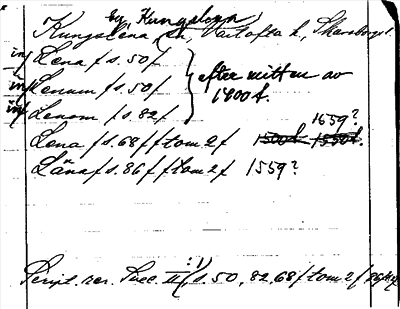 by, Kungslena
Kungslena, sn, Vartofta h., Skarsborgs l.
in/ Lena / s. 50 /
in/ Lenum / s. 50 /
in/ Lenom / s. 82 /
efter mitten av
1400 t.
Lena / s. 68 / f tom 2 / 1500t. 1550t.
1659?
Läna / s. 86 / f tom 2 / 1559?
Script. rer. Svec. II :1 / s. 50, 82, 68 / tom 2 / 86